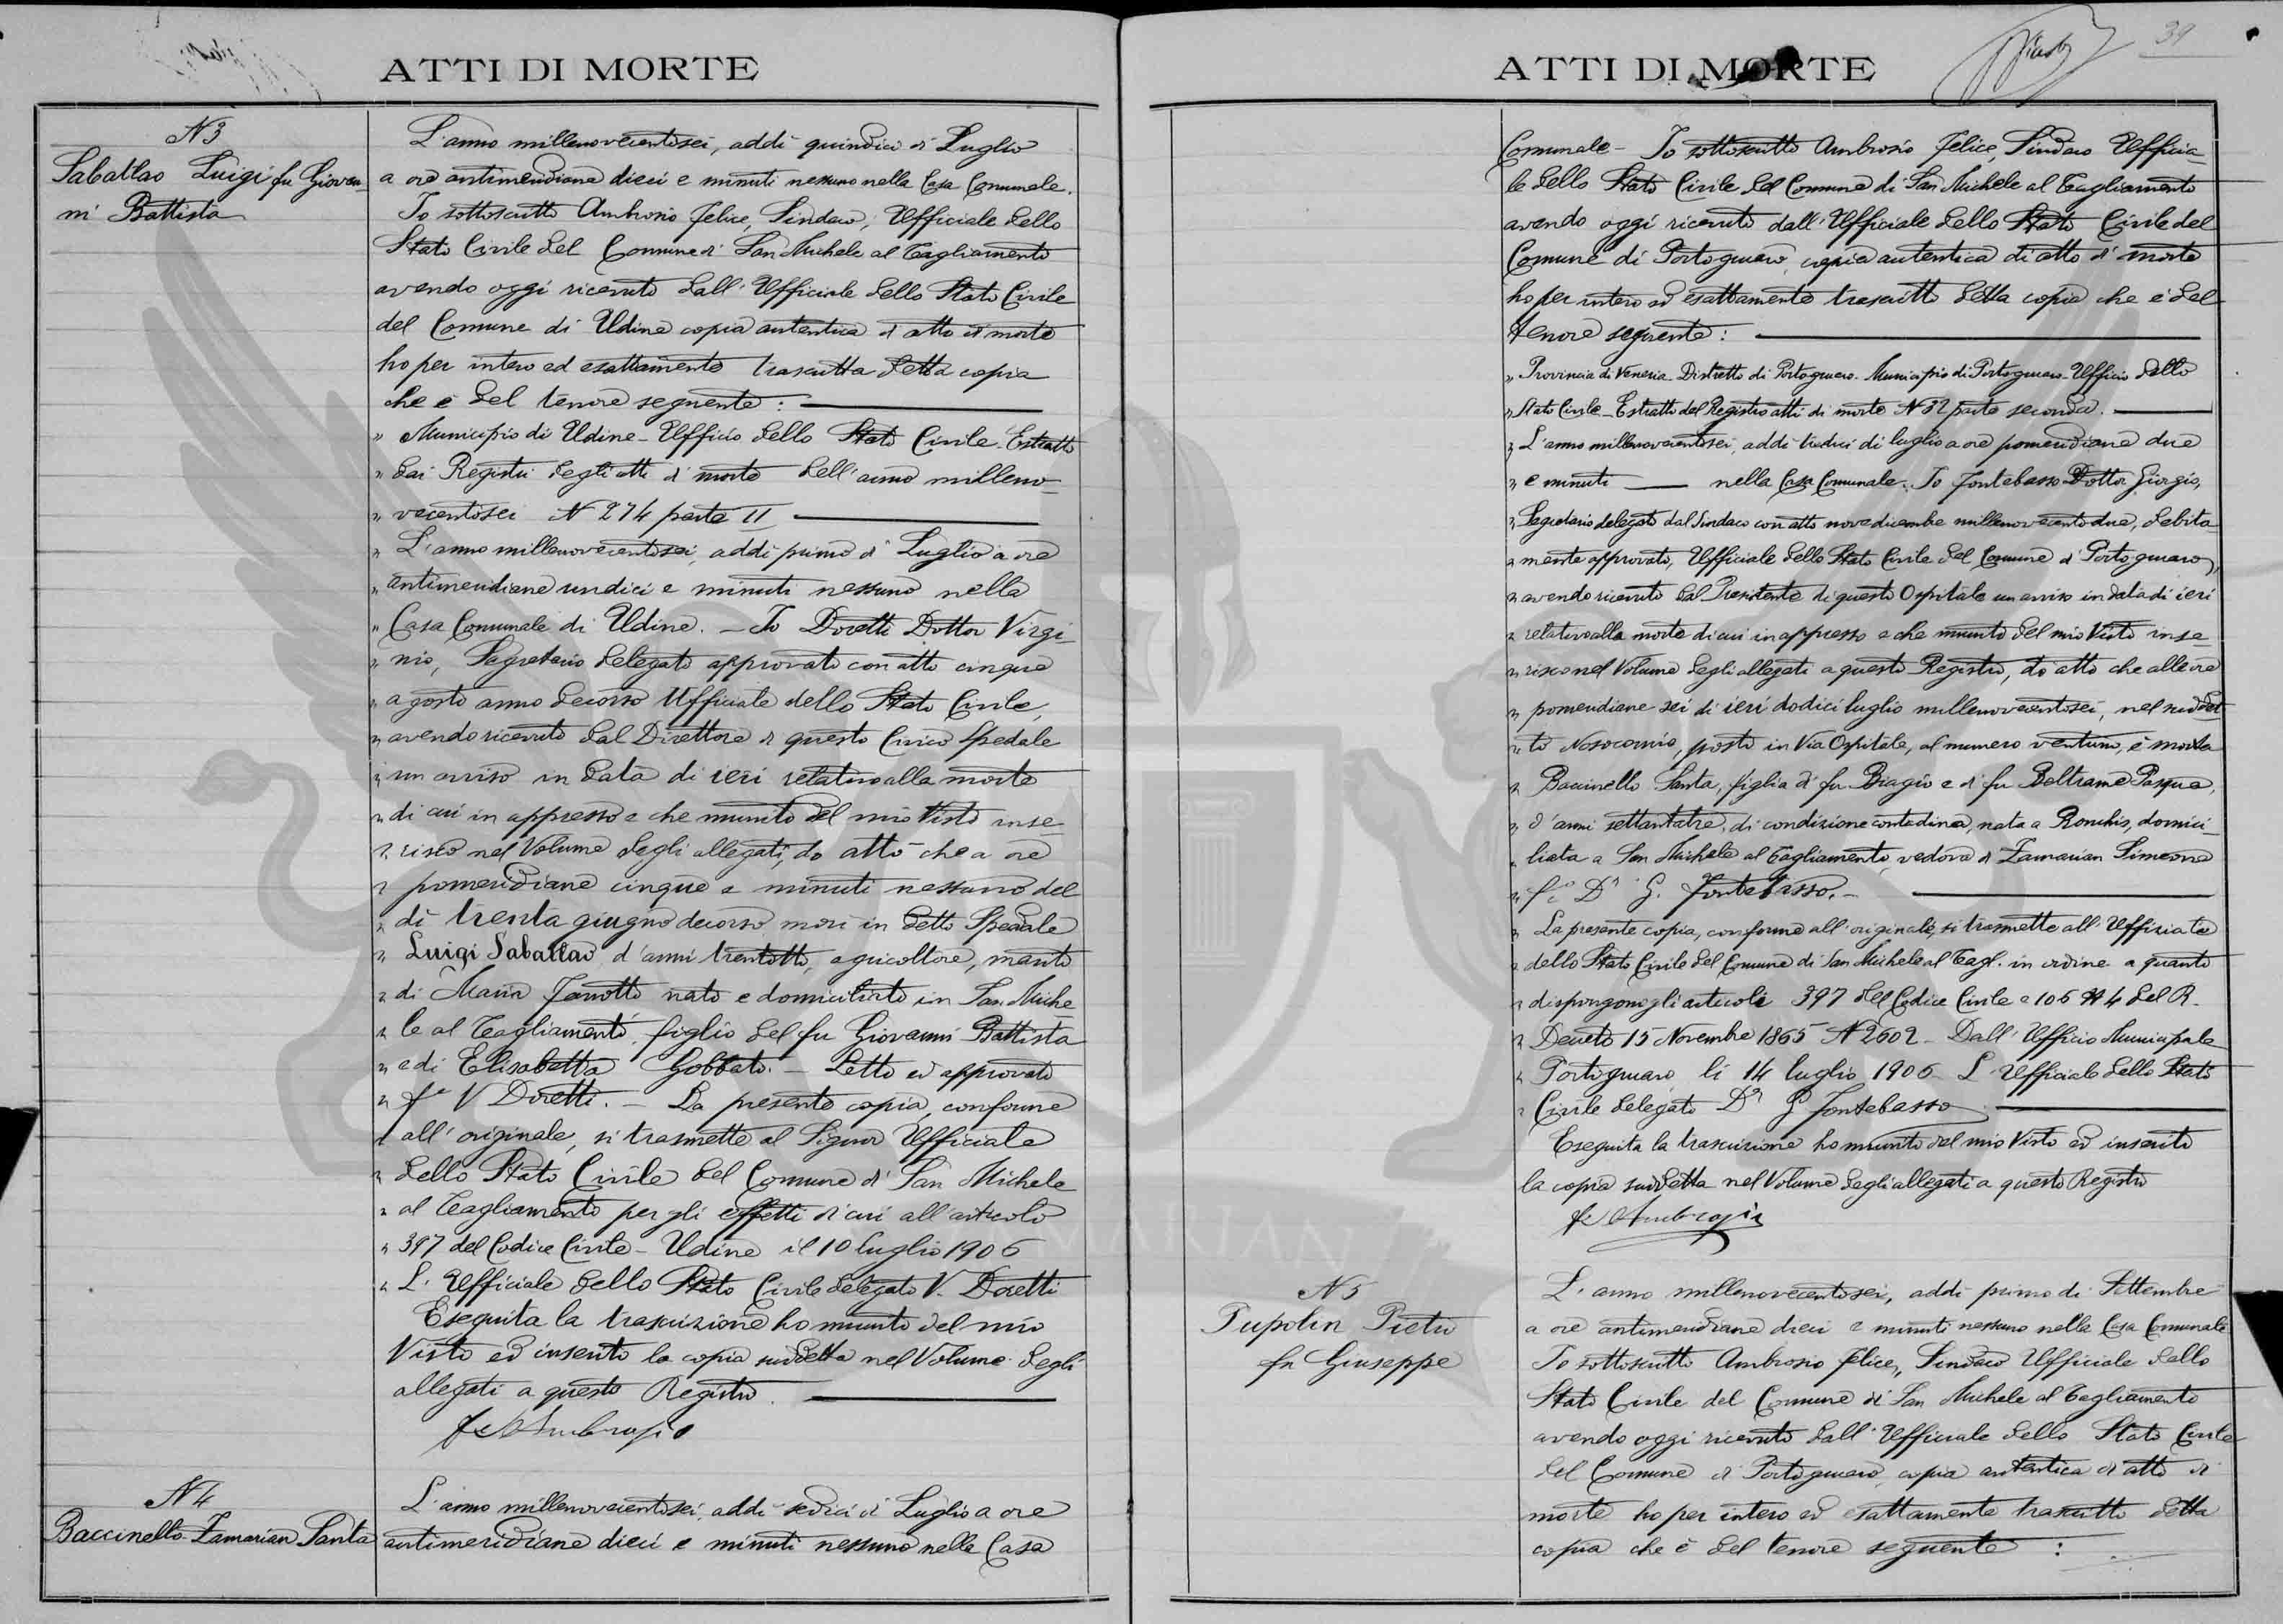 ATTI DI MORTE
N 3
Sabattao Luigi fu Giovan_
ni Battista
L'anno millenovecentosei, addì quindici di Luglio
a ore antimeridiane dieci e minuti nessuno nella Casa Comunale.
Io sottoscritto Ambrosio Felice, Sindaco, Ufficiale dello
Stato Civile del Comune di San Michele al Tagliamento
avendo oggi ricevuto dall'Ufficiale dello Stato Civile
del Comune di Udine copia autentica di atto di morte
ho per intero ed esattamente trascritta detta copia
che è del tenore seguente:
" Municipio di Udine - Ufficio dello Stato Civile - Estratto
" dai Registri degli atti di morte dell'anno milleno_
" vecentosei N 274 parte II
" L'anno millenovecentosei, addì primo di Luglio a ore
" antimeridiane undici e minuti nessuno nella
" Casa Comunale di Udine. - Io Doretti Dottor Virgi_
" nio, Segretario delegato approvato con atto cinque
" agosto anno decorso Ufficiale dello Stato Civile,
" avendo ricevuto dal Direttore di questo Civico Spedale
" un avviso in data di ieri relativo alla morte
" di cui in appresso e che munito del mio Visto inse_
" risco nel Volume degli allegati, do atto che a ore
" pomeridiane cinque e minuti nessuno del
" dì trenta giugno decorso morì in detto Spedale
" Luigi Sabattao d'anni trentotto, agricoltore, marito
" di Maria nato e domiciliato in San Miche_
" le al Tagliamento, figlio del fu Giovanni Battista
" e di Elisabetta Gobbato. - Letto ed approvato
" f.º V Doretti. - La presente copia, conforme
" all'originale, si trasmette al Signor Ufficiale
" dello Stato Civile del Comune di San Michele
" al Tagliamento per gli effetti di cui all'articolo
" 397 del Codice Civile - Udine il 10 luglio 1906
" L'Ufficiale dello Stato Civile delegato V. Doretti
Eseguita la trascrizione ho munito del mio
Visto ed inserito la copia suddetta nel Volume degli
allegati a questo Registro.
Felice Ambrosio
N 4
Baccinello-Zamarian Santa
L'anno millenovecentosei, addì sedici di Luglio a ore
antimeridiane dieci e minuti nessuno nella Casa
ATTI DI MORTE
39
Comunale - Io sottoscritto Ambrosio Felice, Sindaco Ufficia_
le dello Stato Civile del Comune di San Michele al Tagliamento
avendo oggi ricevuto dall'Ufficiale dello Stato Civile del
Comune di Portogruaro, copia autentica di atto di morte
ho per intero ed esattamente trascritto detta copia che è del
tenore seguente:
" Provincia di Venezia - Distretto di Portogruaro - Municipio di Portogruaro - Ufficio dello
" Stato Civile - Estratto dal Registro atti di morte N 32 parte seconda.
" L'anno millenovecentosei, addì tredici di luglio a ore pomeridiane due
" e minuti ___ nella Casa Comunale. Io Fontebasso Dottor Giorgio,
" Segretario delegato dal Sindaco con atto nove dicembre millenovecentodue, debita_
" mente approvato, Ufficiale dello Stato Civile del Comune di Portogruaro,
" avendo ricevuto dal Presidente di questo Ospitale un avviso in data di ieri
" relativo alla morte di cui in appresso e che munito del mio Visto inse_
" risco nel Volume degli allegati a questo Registro, do atto che alle ore
" pomeridiane sei di ieri dodici luglio millenovecentosei, nel suddet
" to Nosocomio, posto in Via Ospitale, al numero ventuno, è morta
" Baccinello Santa, figlia di fu Biagio e di fu Beltrame Pasqua,
" d'anni settantatre, di condizione contadina, nata a Ronchis, domici_
" liata a San Michele al Tagliamento, vedova di Zamarian Simeone
" f.º Dr G. Fontebasso. -
" La presente copia, conforme all'originale, si trasmette all'Uffiziale
" dello Stato Civile del Comune di San Michele al Tagl. in ordine a quanto
" dispongono gli articoli 397 del Codice Civile e 106 N 4 del R.
" Decreto 15 Novembre 1865 N 2602 - Dall'Ufficio Municipale
" Portogruaro li 14 luglio 1906 - L'Ufficiale dello Stato
" Civile delegato Dr G Fontebasso
Eseguita la trascrizione ho munito del mio Visto ed inserito
la copia suddetta nel Volume degli allegati a questo Registro
Felice Ambrosio
N 5
Pupolin Pietro
fu Giuseppe
L'anno millenovecentosei, addì primo di Settembre
a ore antimeridiane dieci e minuti nessuno nella Casa Comunale
Io sottoscritto Ambrosio Felice, Sindaco Ufficiale dello
Stato Civile del Comune di San Michele al Tagliamento
avendo oggi ricevuto dall'Ufficiale dello Stato Civile
del Comune di Portogruaro, copia autentica di atto di
morte ho per intero ed esattamente trascritto detta
copia che è del tenore seguente: